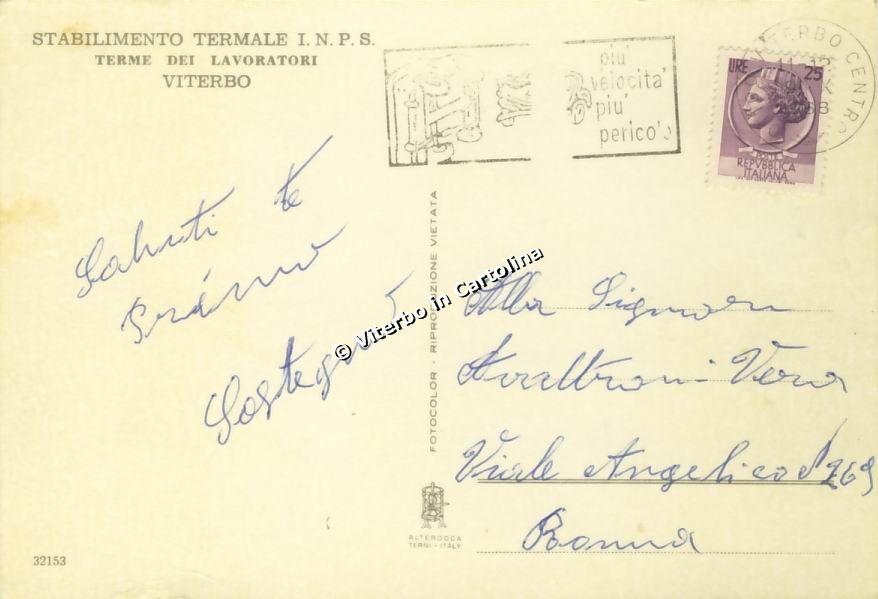 STABILIMENTO TERMALE I.N.P.S.
TERME DEI LAVORATORI
VITERBO
piu'
velocita'
piu'
perico'o
VITERBO CENTRO
LIRE 25
POSTE
REPVBBLICA
ITALIANA
Saluti te
© Viterbo in Cartolina
FOTOCOLOR - RIPRODUZIONE VIETATA
Alla Signora
Vera
Viale Angelico 269
Roma
ALTEROCCA
TERNI - ITALY
32153